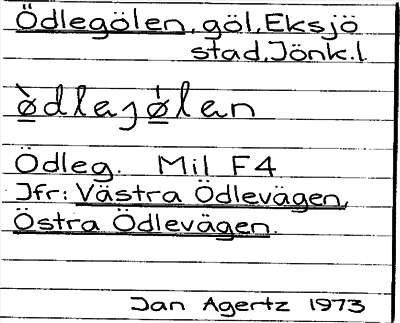 Ödlegölen, göl, Eksjö
stad, Jönk.l.
ø̠̀dlajø̠̍lan
Ödleg. Mil F4
Jfr: Västra Ödlevägen,
Östra Ödlevägen.
Jan Agertz 1973